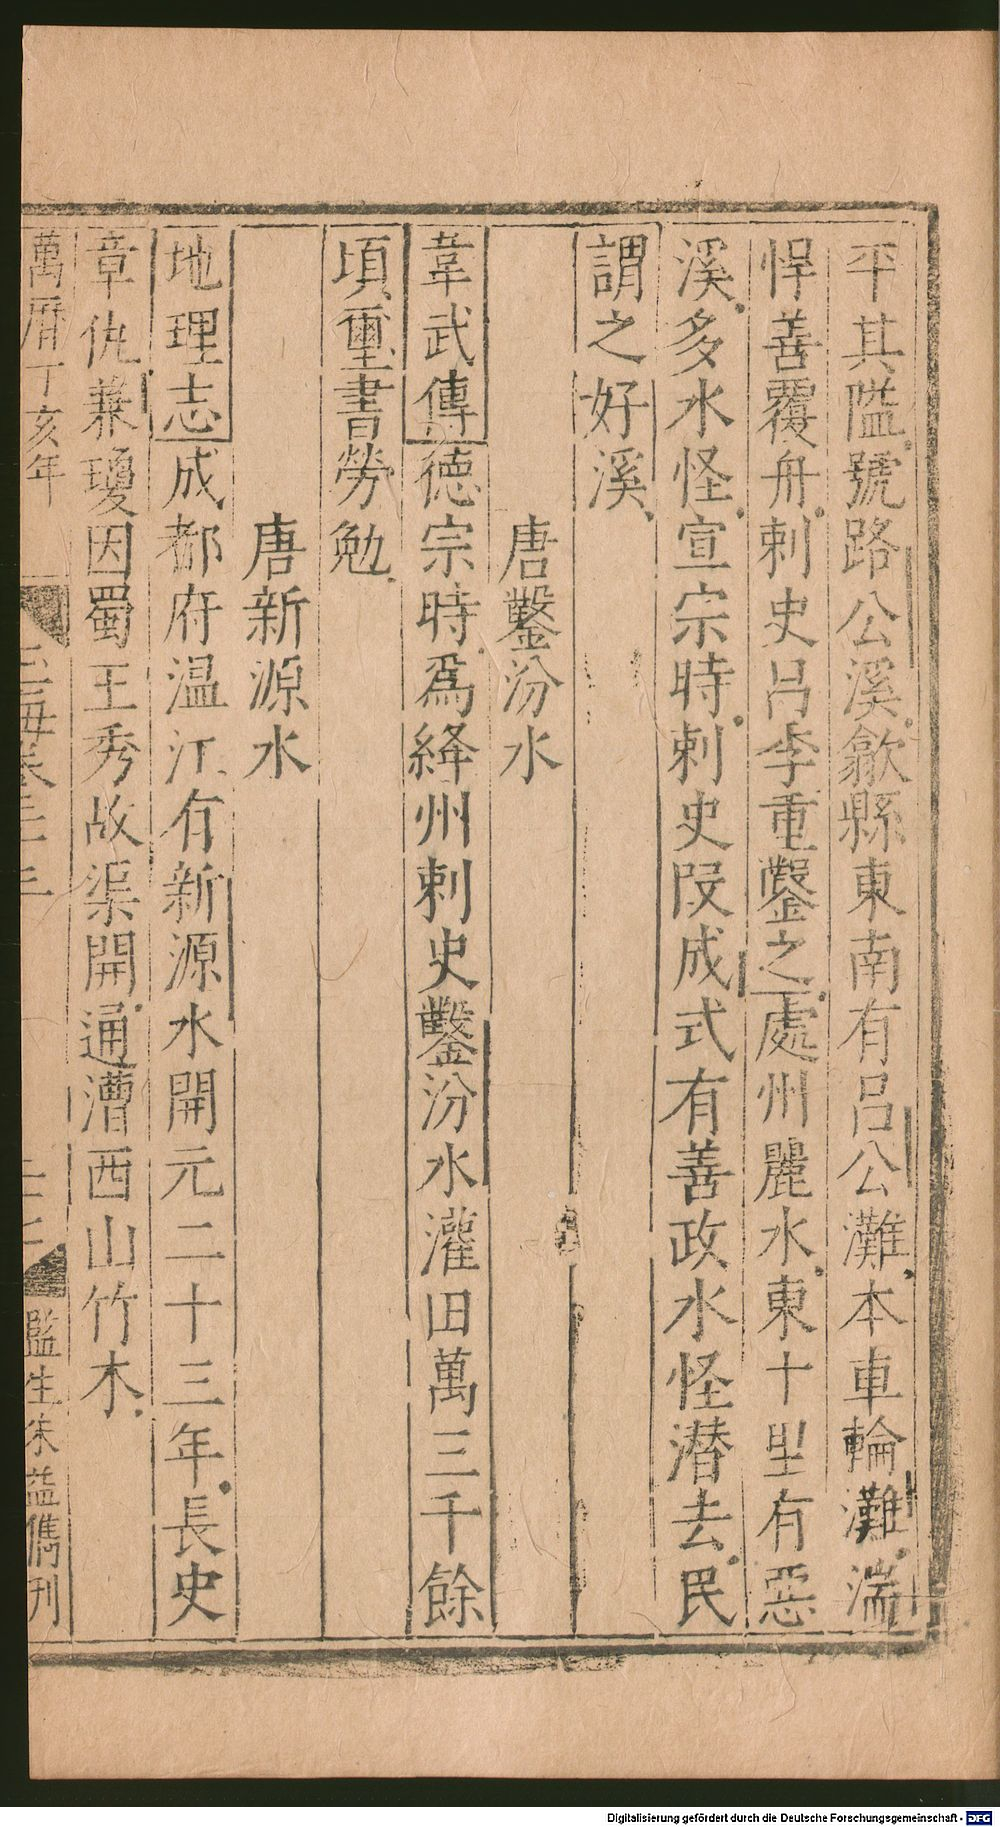 平其隘號路公溪歙縣東南有呂公灘本車輪灘湍
悍善覆舟刺史呂季重鑿之處州麗水東十里有惡
溪多水怪宣宗時刺史段成式有善政水怪潜去民
謂之好溪
唐鑿汾水
韋武傳德宗時爲絳州刺史鑿汾水灌田萬三千餘
頃璽書勞勉
唐新源水
地理志成都府温江有新源水開元二十三年長史
章仇兼瓊因蜀王秀故渠開通漕西山竹木
萬曆丁亥年
玉海卷二十三
監生朱益儁刊
Digitalisierung gefördert durch die Deutsche Forschungsgemeinschaft - DFG